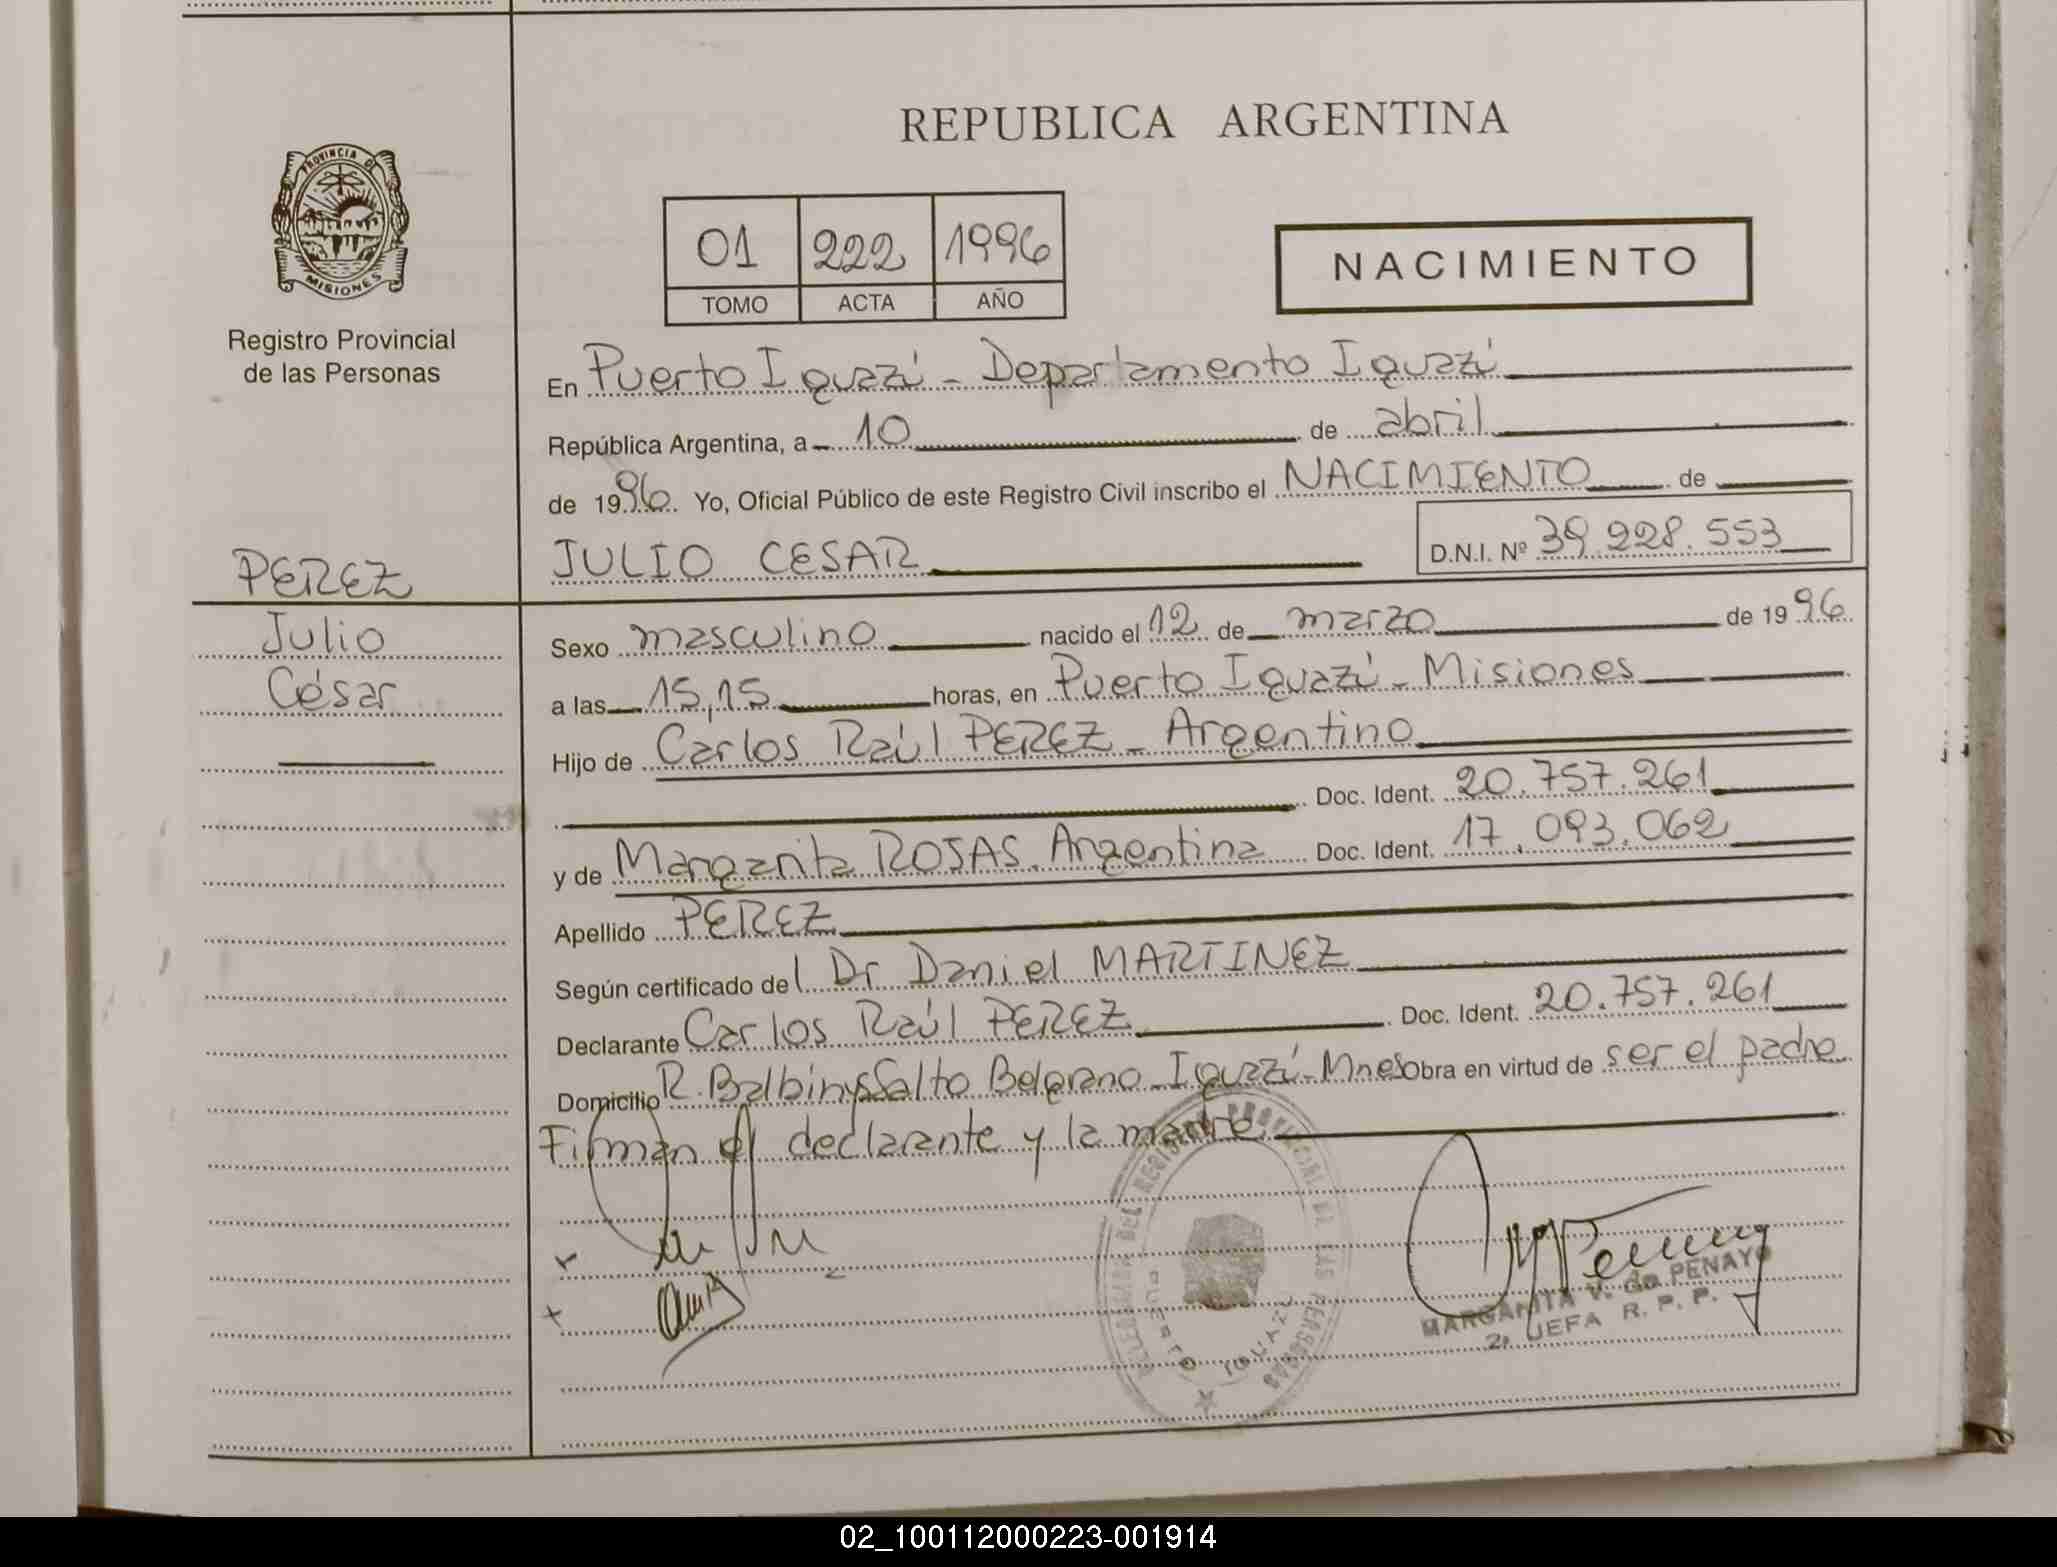 PROVINCIA DE
MISIONES
Registro Provincial
de las Personas
PEREZ
Julio
César
REPUBLICA ARGENTINA
01 222 1996
TOMO ACTA AÑO
NACIMIENTO
En Puerto Iguazú - Departamento Iguazú
República Argentina, a 10 de abril
de 1996. Yo, Oficial Público de este Registro Civil inscribo el NACIMIENTO de
JULIO CESAR D.N.I. Nº 39.228.553
Sexo masculino nacido el 12 de marzo de 1996
a las 15,15 horas, en Puerto Iguazú - Misiones
Hijo de Carlos Raúl PEREZ - Argentino
Doc. Ident. 20.757.261
y de Margarita ROJAS. Argentina Doc. Ident. 17.093.062
Apellido PEREZ
Según certificado del Dr Daniel MARTINEZ
Declarante Carlos Raúl PEREZ Doc. Ident. 20.757.261
Domicilio R. Balbin y Salto Belgrano - Iguazú - Mnes Obra en virtud de ser el padre
Firman el declarante y la madre
DELEGACION DEL REGISTRO PROVINCIAL DE LAS PERSONAS
PUERTO IGUAZU
MARGARITA V. de PENAYO
2a JEFA R. P. P.
02_100112000223-001914